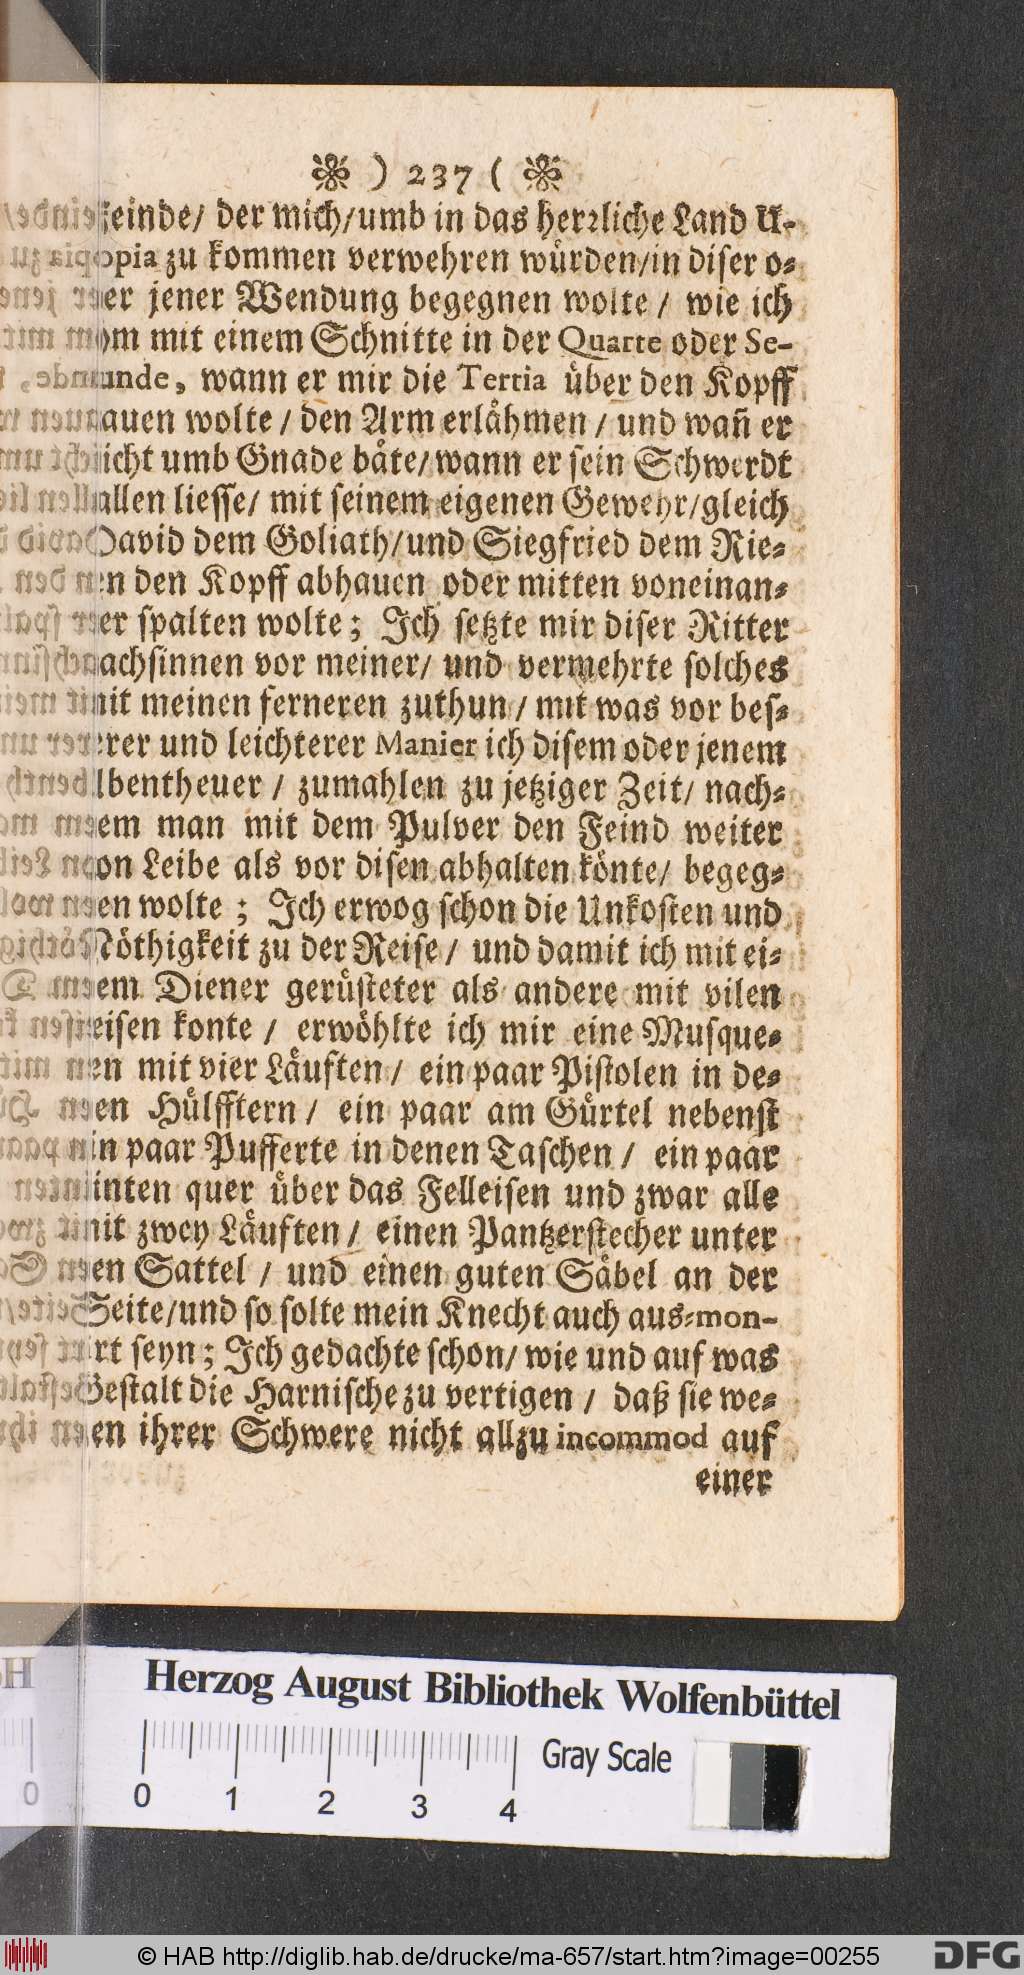 ❀ ) 237 ( ❀
feinde/ der mich/umb in das herꝛliche Land U-
topia zu kommen verwehren wuͤrden/in diser o-
der jener Wendung begegnen wolte / wie ich
ihm mit einem Schnitte in der Quarte oder Se-
cunde, wann er mir die Tertia uͤber den Kopff
hauen wolte / den Arm erlaͤhmen / und wañ er
nicht umb Gnade baͤte/wann er sein Schwerdt
fallen liesse/ mit seinem eigenen Gewehr/gleich
David dem Goliath/und Siegfried dem Rie-
sen den Kopff abhauen oder mitten voneinan-
der spalten wolte; Ich setzte mir diser Ritter
nachsinnen vor meiner/ und vermehrte solches
mit meinen ferneren zuthun / mit was vor bes-
serer und leichterer Manier ich disem oder jenem
Abentheuer / zumahlen zu jetziger Zeit/ nach-
dem man mit dem Pulver den Feind weiter
von Leibe als vor disen abhalten koͤnte/ begeg-
nen wolte ; Ich erwog schon die Unkosten und
Noͤthigkeit zu der Reise / und damit ich mit ei-
nem Diener geruͤsteter als andere mit vilen
reisen konte / erwoͤhlte ich mir eine Musque-
ten mit vier Laͤuften / ein paar Pistolen in de-
nen Huͤlfftern / ein paar am Guͤrtel nebenst
ein paar Pufferte in denen Taschen / ein paar
hinten quer uͤber das Felleisen und zwar alle
mit zwey Laͤuften / einen Pantzerstecher unter
den Sattel / und einen guten Saͤbel an der
Seite/und so solte mein Knecht auch aus-mon-
tirt seyn; Ich gedachte schon/ wie und auf was
Gestalt die Harnische zu vertigen / daß sie we-
gen ihrer Schwere nicht allzu incommod auf
einer
Herzog August Bibliothek Wolfenbüttel
0 0 1 2 3 4 Gray Scale
© HAB http://diglib.hab.de/drucke/ma-657/start.htm?image=00255 DFG